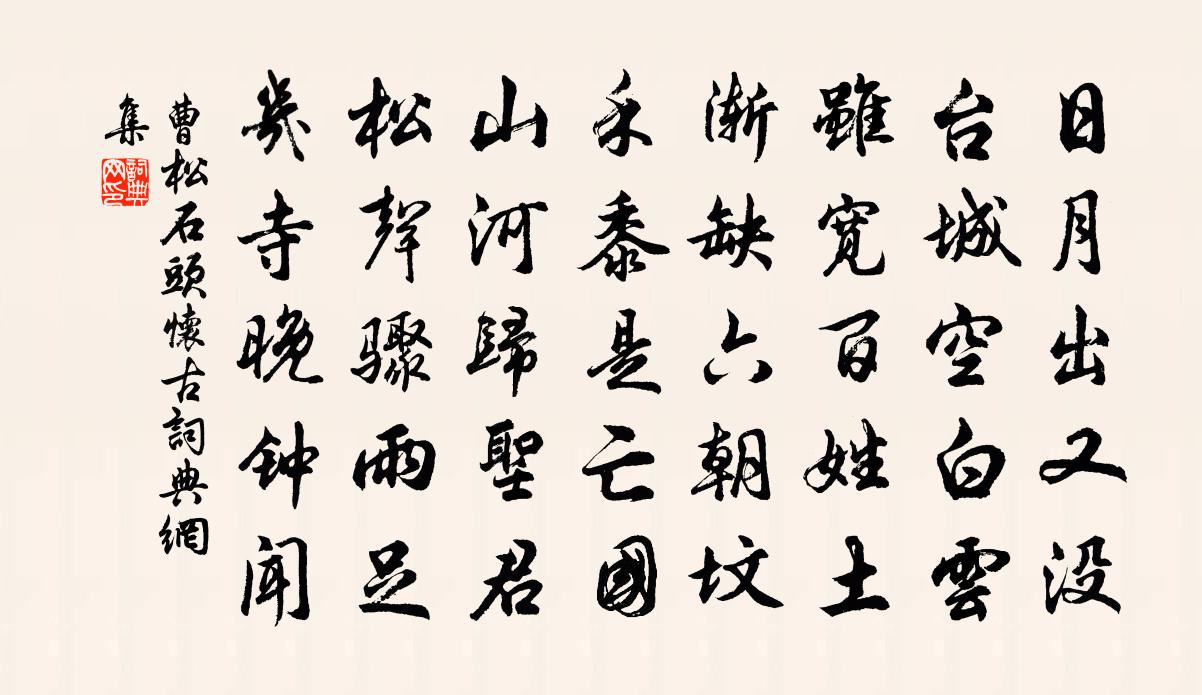 日月出又没
台城空白雲
雖寛百姓土
漸缺六朝坟
禾黍是亡國
山河歸聖君
松聲驟雨足
幾寺晚钟闻
曹松石頭懷古詞典網
集
詞典網印